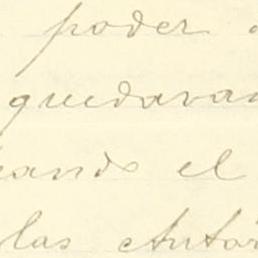 poder
quedava
ando el
las Autor